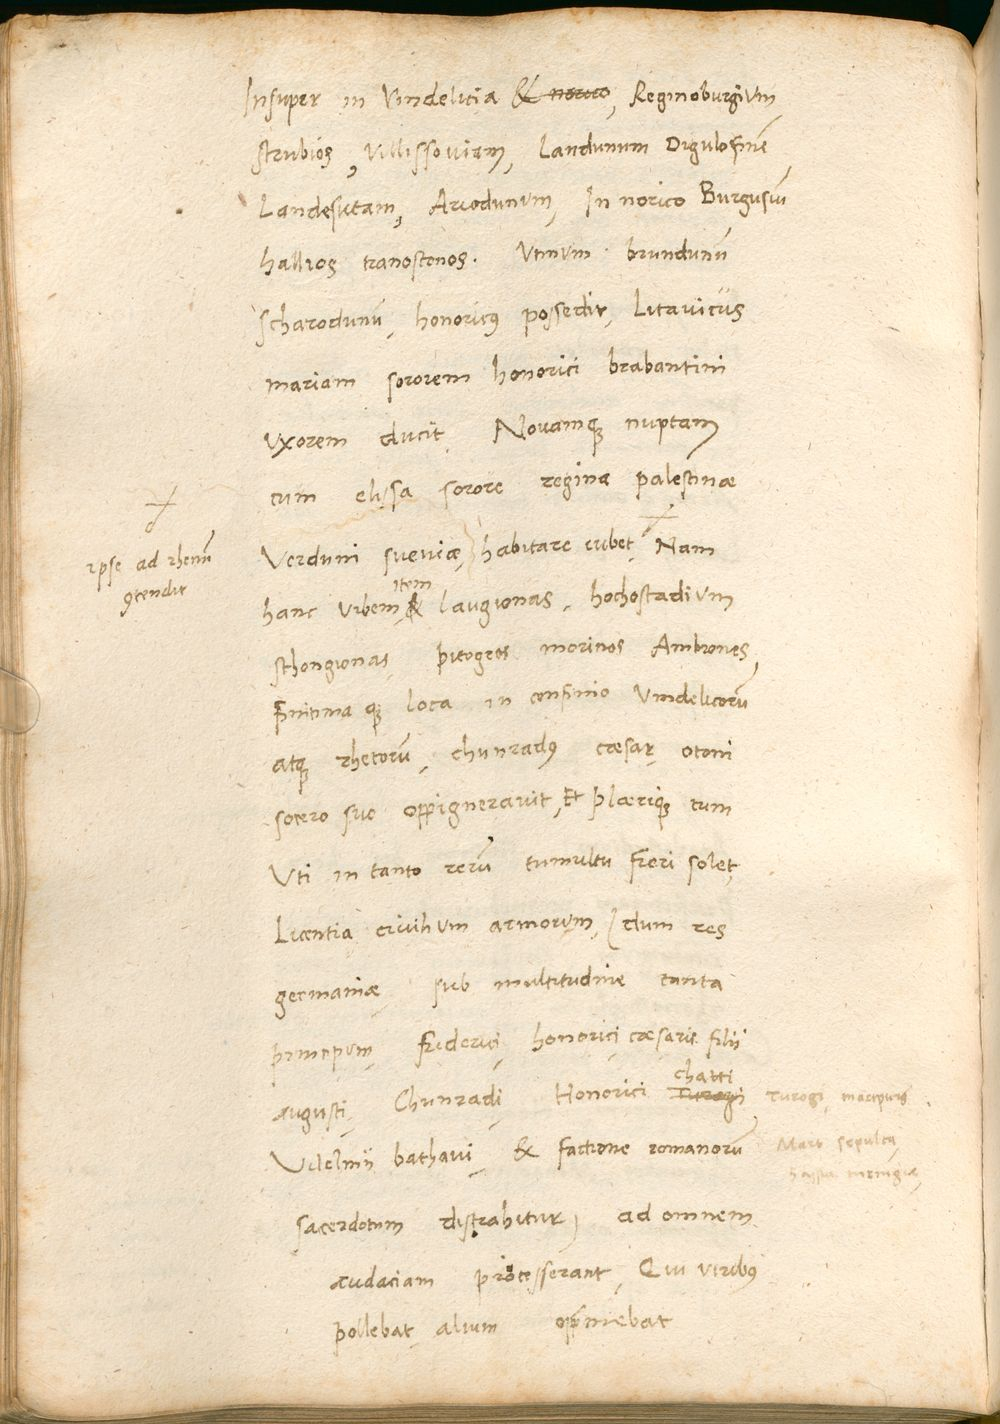 Insuper in Vindelicia & norico, Reginoburgium
strubios, Villissoviam, Landunum Digulofinẽ
Landesutam, Arcodunum, In norico Burgusiũ
hallios tranostenos. Utinum brundunũ
scharodunũ, honoricus possedit, Litavicus
mariam sororem honorici brabantini
uxorem ducit, Novamq; nuptam
cum elissa sorore regina palestinae
Verduni sueviae, habitare iubet, Nam
ipse ad rhenũ
9tendit
item
hanc Urbem, & laugionas, hochostadium
sthongionas, pitogeos morinos Ambrones,
finitima q; loca in confinio Vindelicorũ
atq; rhetorũ, chunradus caesar, otoni
socero suo oppigneravit, Et plaeriq; cum
Uti in tanto rerũ tumultu fieri solet,
Licentia civilium armorum, (dum res
germaniae sub multitudine tanta
principum, friderici, honorici caesaris filii
chatti
augusti, Chunradi Honorici Turogi
Turogi,
Vilelmii bathavi, & factione romanorũ
sacerdotum distrahitur) ad omnem
audaciam processerant, Qui viribus
pollebat alium opprimebat